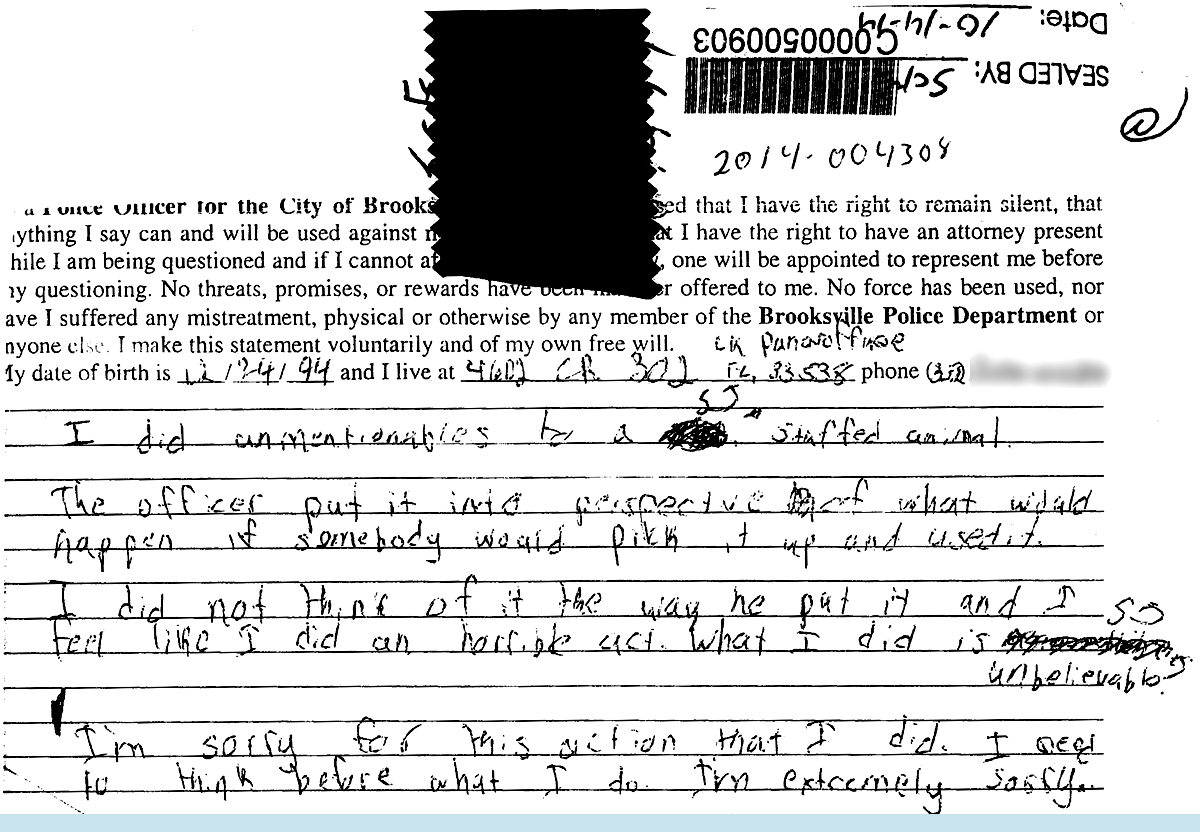 Date: 10-14-14
C0000500903
SEALED BY:
2014-004308
a Police Officer for the City of Brooks sed that I have the right to remain silent, that
ything I say can and will be used against m at I have the right to have an attorney present
hile I am being questioned and if I cannot af , one will be appointed to represent me before
ny questioning. No threats, promises, or rewards have been m or offered to me. No force has been used, nor
ave I suffered any mistreatment, physical or otherwise by any member of the Brooksville Police Department or
nyone else. I make this statement voluntarily and of my own free will.
My date of birth is 12/24/94 and I live at CR 302 FL, 33538 phone (352)
SJ
I did unmentionables to a stuffed animal.
The officer put it into perspective of what would
happen if somebody would pikk it up and used it.
I did not think of it the way he put it and I
SJ
feel like I did an horrible act. What I did is
unbelievable.
I'm sorry for this action that I did. I need
to think before what I do. I'm extremely sorry.